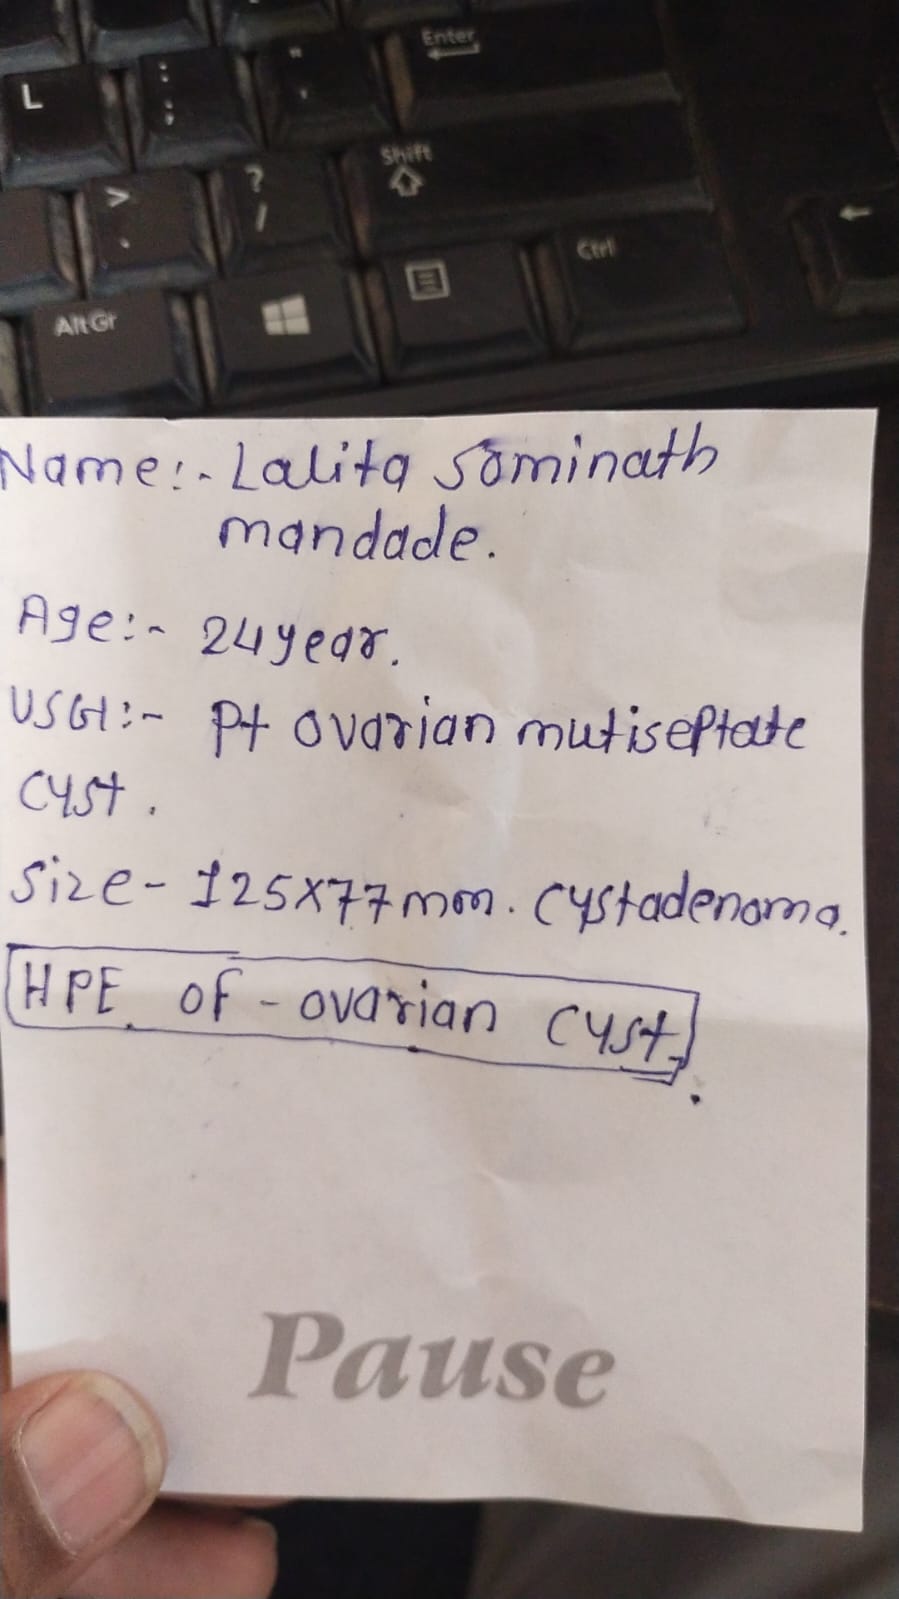 Enter
L
:
;
"
'
Shift
>
.
?
/
Ctrl
AltGr
Name:- Lalita Sominath
mandade.
Age:- 24 year.
USG:- Pt ovarian mutiseptate
cyst.
Size- 125x77mm. cystadenoma.
HPE of - ovarian cyst.
Pause